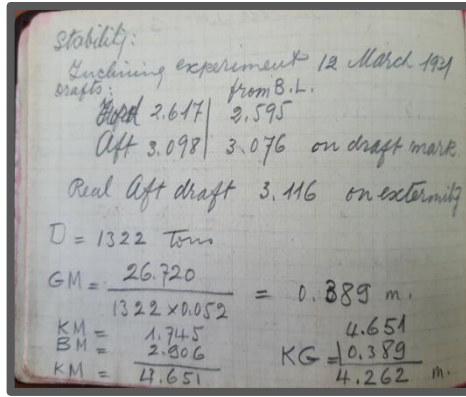 Stability:
Inclining experiment 12 March 1921
Drafts: from B.L.
Ford 2.617 | 2.595
Aft 3.098 | 3.076 on draft mark
Real Aft draft 3.116 on extermity
D = 1322 Tons
GM = 26.720 / 1322 x 0.052 = 0.389 m.
KM = 1.745 4.651
BM = 2.906 KG = 0.389
KM = 4.651 4.262 m.